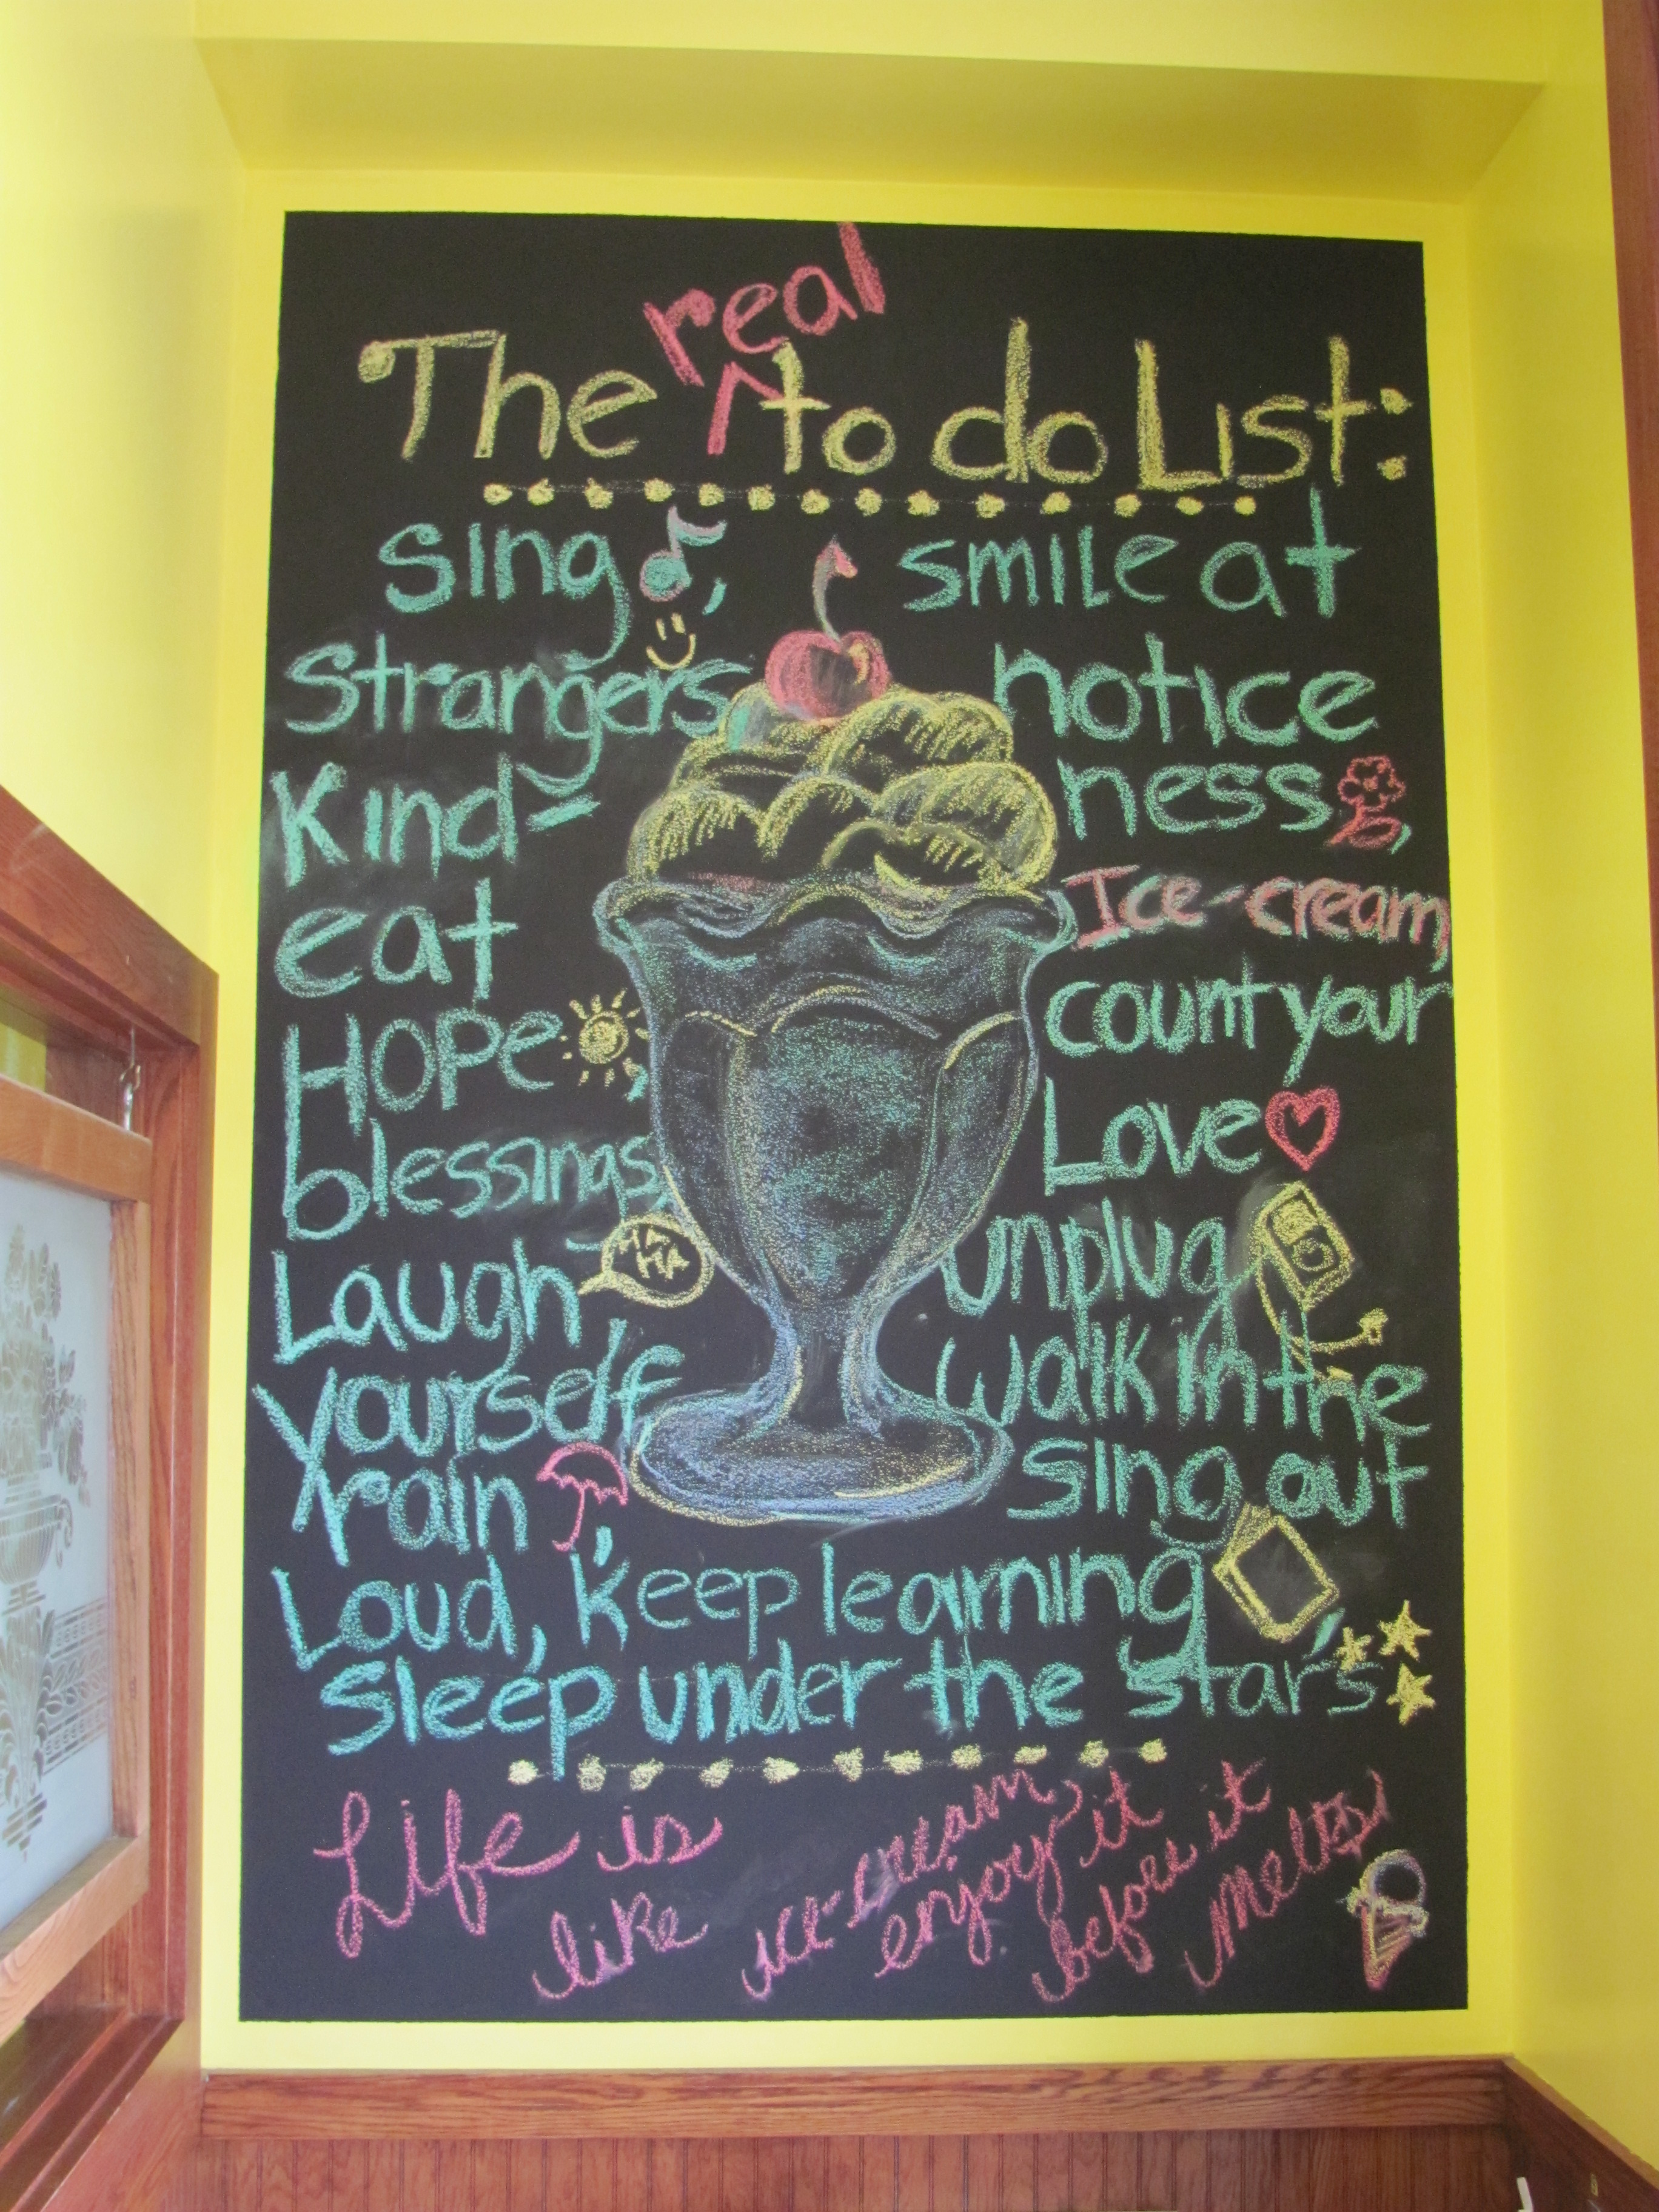 The real to do List:
sing, smile at
strangers notice
Kind- ness,
eat Ice-cream,
Hope, count your
blessings, Love
Laugh HA HA, unplug
yourself walk in the
rain, sing out
Loud, keep learning,
sleep under the stars
Life is like ice-cream, enjoy it before it melts!